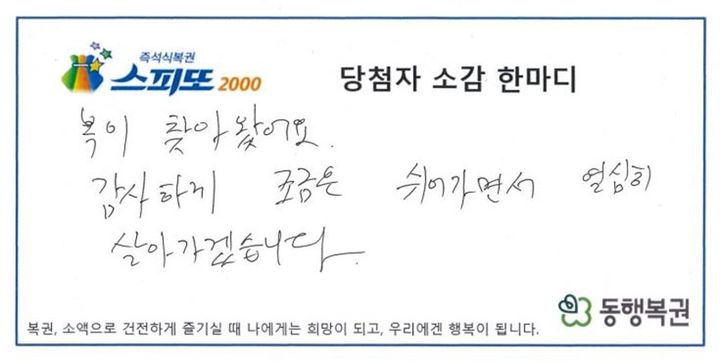 즉석식복권
스피또 2000
당첨자 소감 한마디
복이 찾아 왔어요.
감사하게 조금은 쉬어가면서 열심히
살아가겠습니다.
동행복권
복권, 소액으로 건전하게 즐기실 때 나에게는 희망이 되고, 우리에겐 행복이 됩니다.